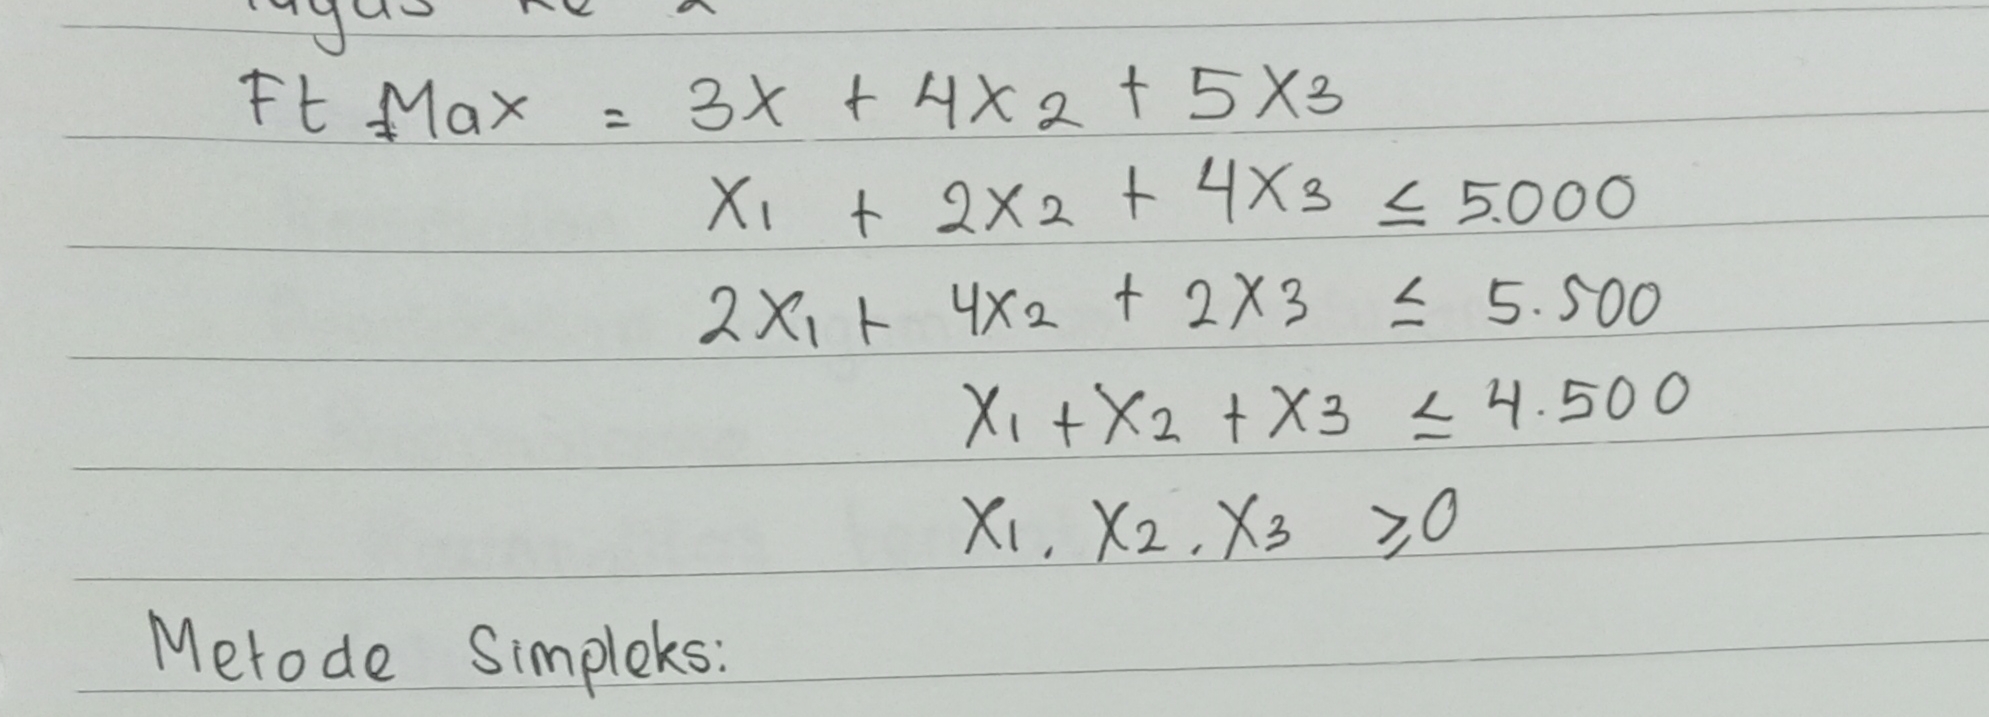 Ft Max = 3X + 4X2 + 5X3
X1 + 2X2 + 4X3 ≤ 5.000
2X1 + 4X2 + 2X3 ≤ 5.500
X1 + X2 + X3 ≤ 4.500
X1, X2, X3 ≥ 0
Metode Simpleks: